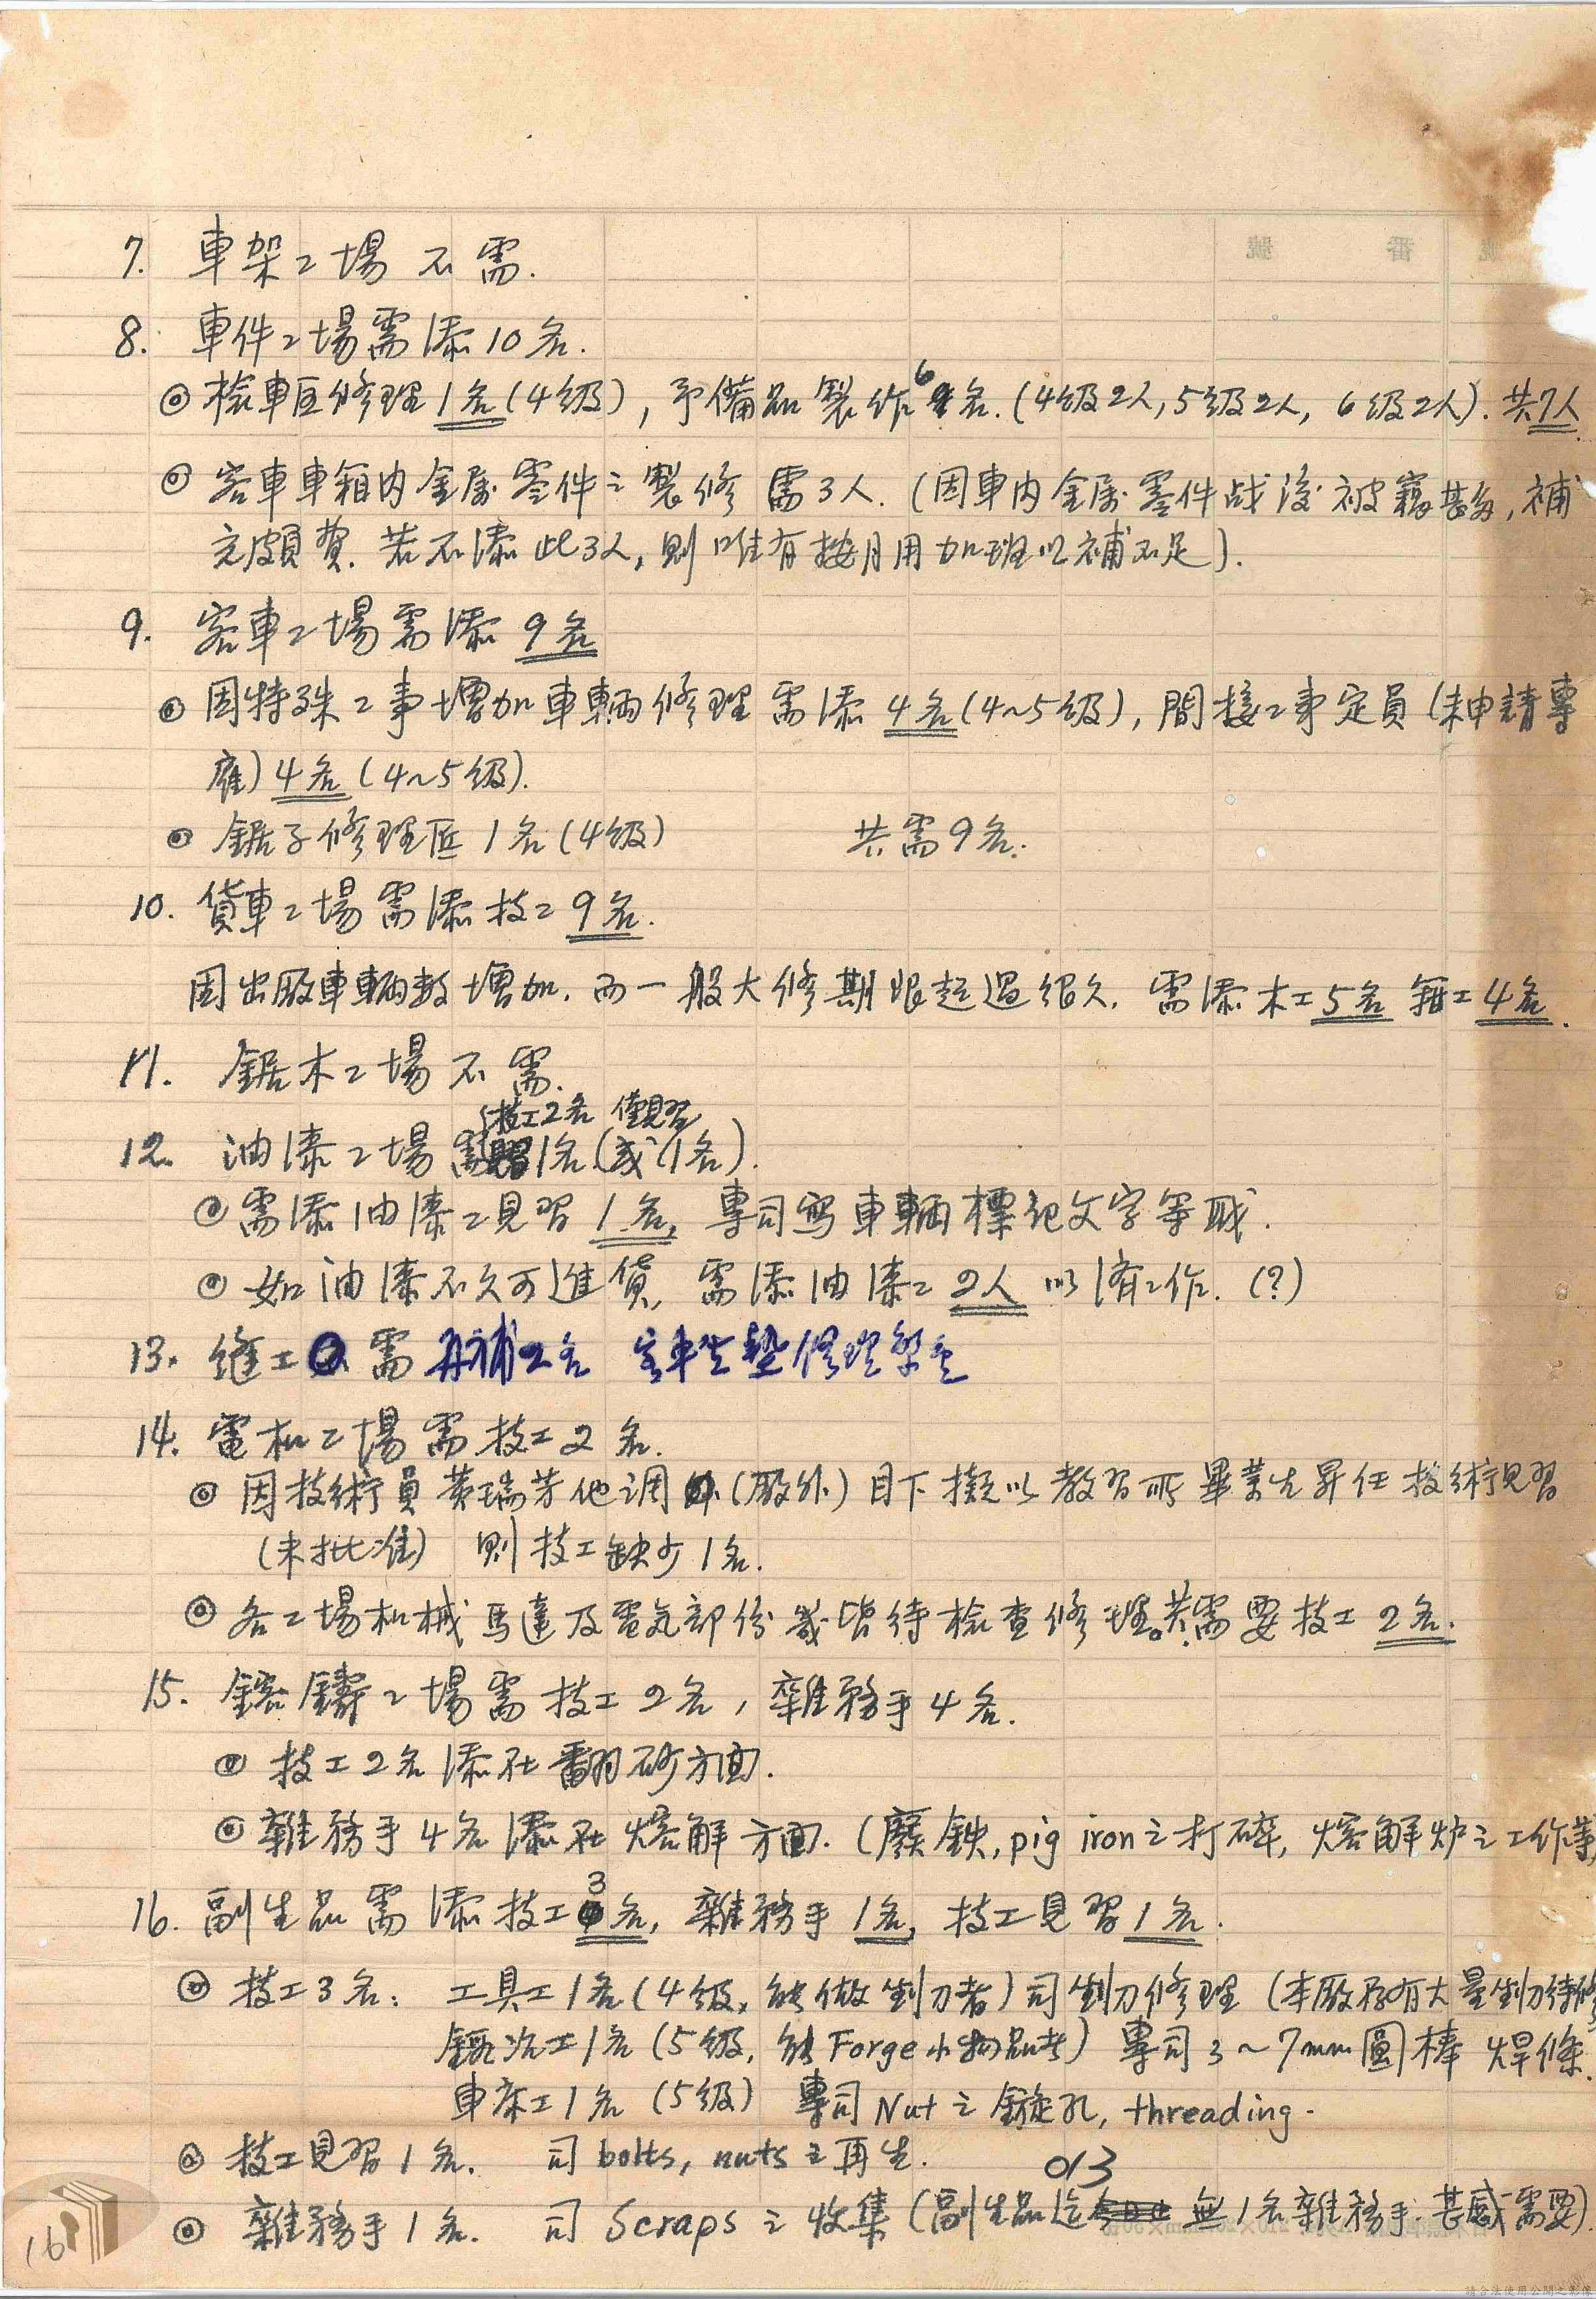 7. 車架工場 不需.
8. 車件工場需添10名.
◎ 檢車區修理1名(4級), 予備品製作6名.(4級2人, 5級2人, 6級2人). 共7人
◎ 客車車箱内金属零件之製修 需3人. (因車内金属零件战後被竊甚多, 補
充頗費. 若不添此3人, 則唯有按月用加班以補不足).
9. 客車工場需添 9名
◎ 因特殊工事增加車輛修理需添 4名(4~5級), 間接工事定員(未申請專
雇) 4名 (4~5級).
◎ 鋸子修理匠 1名(4級) 共需9名.
10. 貨車工場需添技工9名.
因出廠車輛数增加. 而一般大修期限超過很久. 需添木工5名 鉗工4名.
11. 鋸木工場 不需.
技工2名 僅見習
12. 油漆工場 需 1名(或1名).
◎ 需添油漆工見習 1名, 專司寫車輛標記文字等职.
◎ 如油漆不久可進貨, 需添油漆工 2人 以 工作. (?)
13. 縫工 需 再補2名 客車坐墊修理
14. 電机工場需技工2名.
◎ 因技術員黃瑞芳他调 (廠外) 目下擬以教習所畢業生昇任技術見習
(未批准) 則技工缺少1名.
◎ 各工場机械馬達及電気部份 皆待檢查修理。共需要技工 2名.
15. 鎔鑄工場需技工2名, 雜務手4名.
◎ 技工2名添在翻砂方面.
◎ 雜務手4名添在熔解方面. (廢鉄, pig iron之打碎, 熔解炉之工作等
16. 副生品需添技工3名, 雜務手 1名, 技工見習1名.
◎ 技工3名: 工具工1名(4級, 能做剉刀者)司剉刀修理 (本廠存有大量剉刀待修
鍛冶工1名 (5級, 能Forge小物品者) 專司3~7mm圓棒 焊條.
車床工1名 (5級) 專司Nut之鏇孔, threading.
◎ 技工見習1名. 司 bolts, nuts之再生.
013
◎ 雜務手1名. 司 Scraps之收集 (副生品迄 無1名雜務手. 甚感需要).
16
請合法使用公開之影像